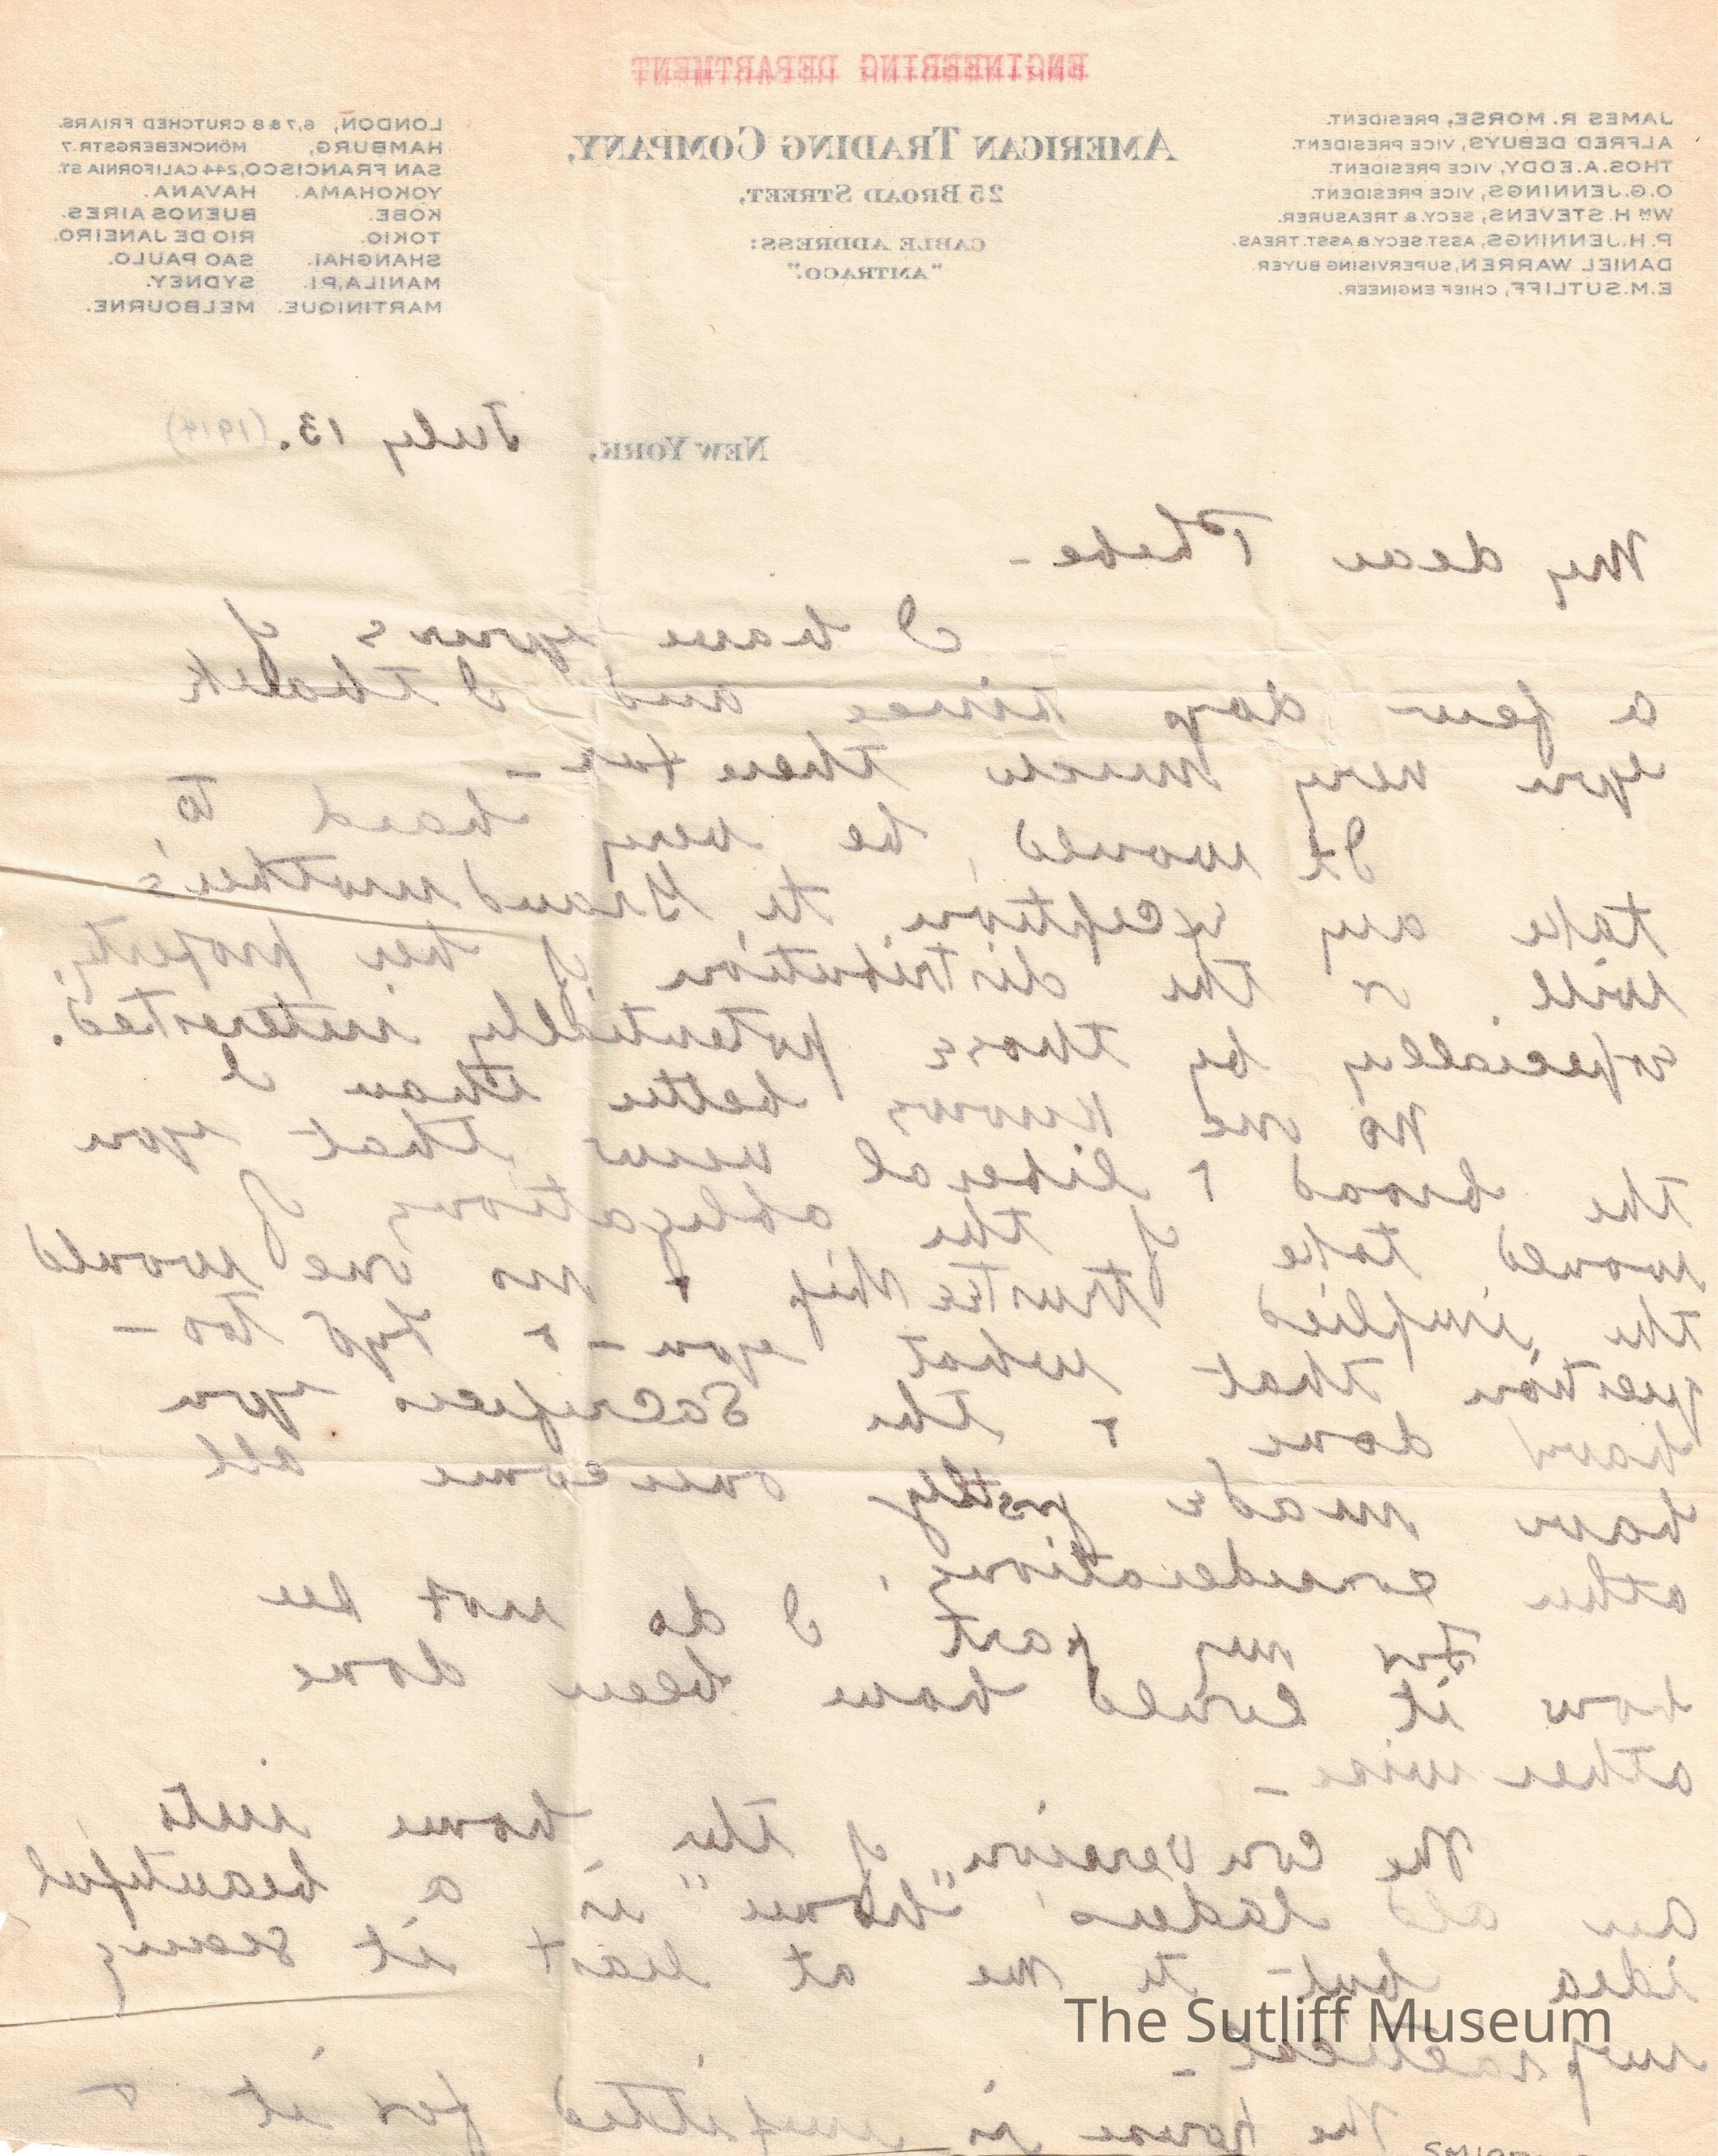 ENGINEERING DEPARTMENT
JAMES R. MORSE, PRESIDENT.
ALFRED DEBUYS, VICE PRESIDENT.
THOS. A. EDDY, VICE PRESIDENT.
O.G. JENNINGS, VICE PRESIDENT.
WM H. STEVENS, SECY. & TREASURER.
P.H. JENNINGS, ASST. SECY & ASST. TREAS.
DANIEL WARREN, SUPERVISING BUYER.
E.M. SUTLIFF, CHIEF ENGINEER.
AMERICAN TRADING COMPANY,
25 BROAD STREET,
CABLE ADDRESS:
"AMTRACO."
LONDON, 6,7 & 8 CRUTCHED FRIARS.
HAMBURG, MÖNCKEBERGSTR. 7
SAN FRANCISCO, 244 CALIFORNIA ST.
YOKOHAMA. HAVANA.
KOBE. BUENOS AIRES.
TOKIO. RIO DE JANEIRO.
SHANGHAI. SAO PAULO.
MANILA, P.I. SYDNEY.
MARTINIQUE. MELBOURNE.
NEW YORK, July 13. (1914)
My dear Phebe -
I have yours of
a few days since and I thank
you very much therefor -
It would be very hard to
take any exception to Grandmother's
will or the distribution of her property,
especially by those potentially interested.
No one knows better than I
the broad & liberal view that you
would take of the obligations of
the implied trusteeship & no one would
question that what you - & too -
have done & the sacrifices you
have made justly overcome all
other considerations.
For my part I do not see
how it could have been done
otherwise -
The conversion of the home into
an old ladies "home" is a beautiful
idea but to me at least it seems
impractical -
The house is unfitted for it &
The Sutliff Museum